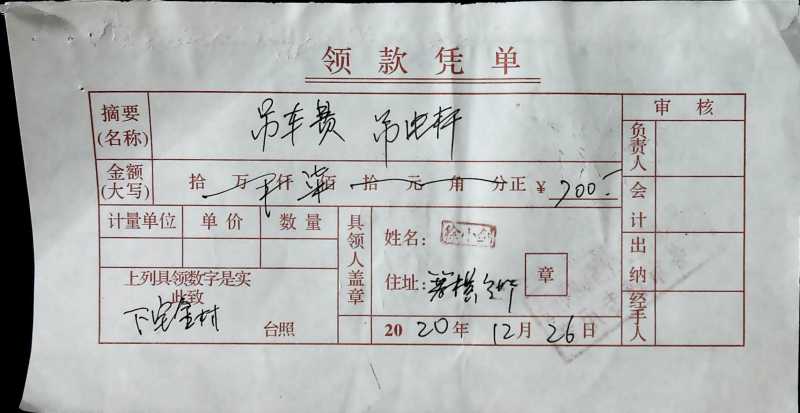 领款凭单
摘要(名称) 吊车费 吊电杆
金额(大写) 拾 万 仟 柒 佰 拾 元 角 分正 ¥ 700.-
计量单位 单价 数量
具领人盖章
姓名: 徐小剑
住址:
章
上列具领数字是实
此致
下宅金村 台照
2020年12月26日
审核
负责人
会计
出纳
经手人